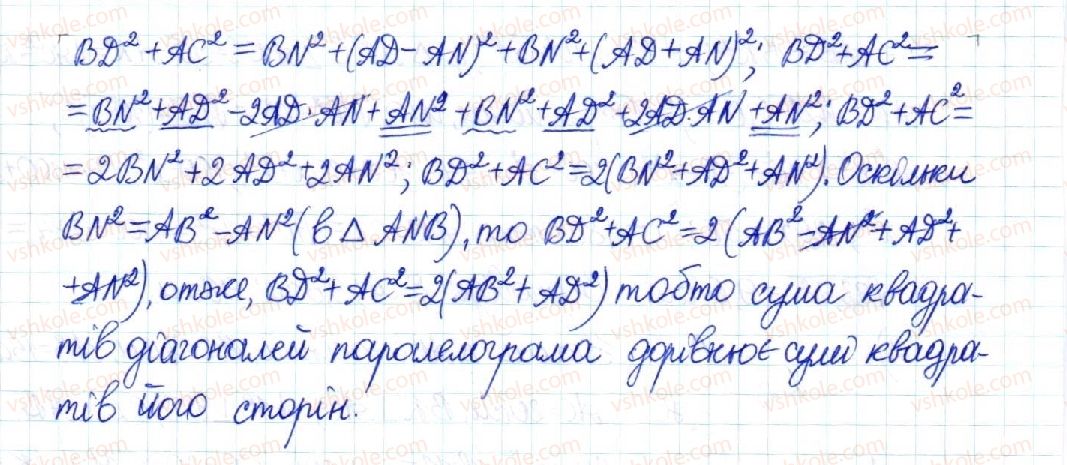 BD² + AC² = BN² + (AD − AN)² + BN² + (AD + AN)²; BD² + AC² =
= BN² + AD² − 2AD · AN + AN² + BN² + AD² + 2AD · AN + AN²; BD² + AC² =
= 2BN² + 2AD² + 2AN²; BD² + AC² = 2(BN² + AD² + AN²). Оскільки
BN² = AB² − AN² (в △ ANB), то BD² + AC² = 2(AB² − AN² + AD² +
+ AN²), отже, BD² + AC² = 2(AB² + AD²) тобто сума квадра-
тів діагоналей паралелограма дорівнює сумі квадра-
тів його сторін.